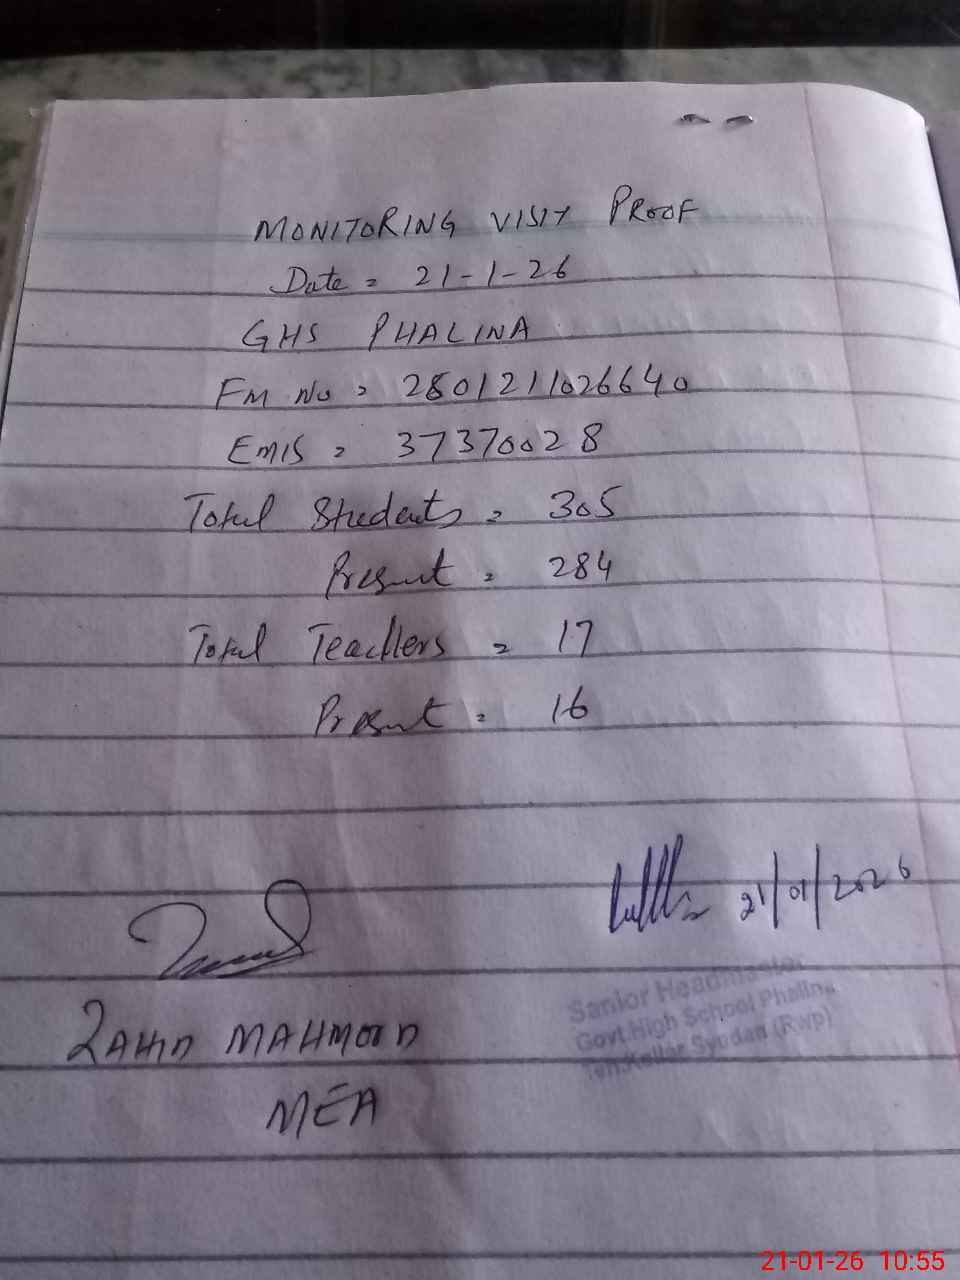 MONITORING VISIT PROOF
Date = 21-1-26
GHS PHALINA
FM No = 2801211026640
EMIS = 37370028
Total Students = 305
Present = 284
Total Teachers = 17
Present = 16
21/01/2026
ZAHID MAHMOOD
MEA
Senior Headmaster
Govt.High School Phalina
Teh.Kallar Syedan (Rwp)
21-01-26 10:55